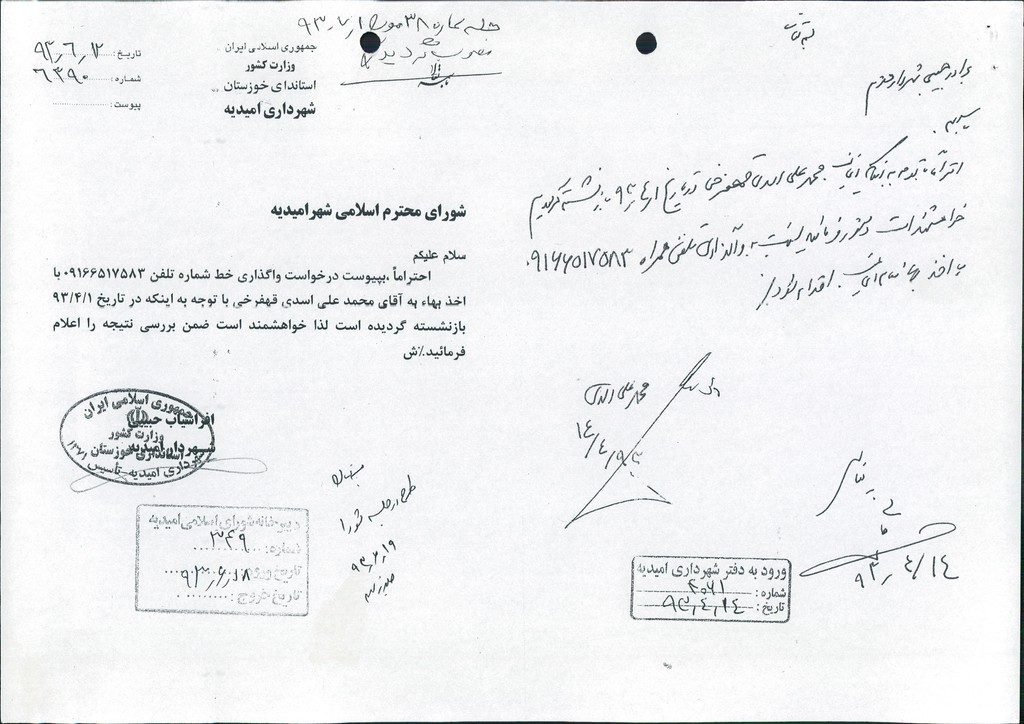 بسمه تعالی
برادر حبیبی شهردار محترم
امیدیه
احتراماً با توجه به اینکه اینجانب محمد علی اسدی قهفرخی در تاریخ ۹۳/۴/۱ بازنشسته گردیدم
خواهشمند است دستور فرمائید نسبت به واگذاری تلفن همراه ۰۹۱۶۶۵۱۷۵۸۳
با اخذ بهاء بنام اینجانب اقدام گردد
محمد علی اسدی
۹۳/۴/۱۴
۹۳/۴/۱۴
ورود به دفتر شهرداری امیدیه
شماره: ۴۰۶۱
تاریخ: ۹۳/۴/۱۴
جلسه شماره ۳۸ مورخ ۹۳/۷/۱
جمهوری اسلامی ایران
وزارت کشور
استانداری خوزستان
شهرداری امیدیه
تاریخ: ۹۳/۶/۱۲
شماره: ۶۳۹۰
پیوست:
شورای محترم اسلامی شهرامیدیه
سلام علیکم
احتراماً ،بپیوست درخواست واگذاری خط شماره تلفن ۰۹۱۶۶۵۱۷۵۸۳ با
اخذ بهاء به آقای محمد علی اسدی قهفرخی با توجه به اینکه در تاریخ ۹۳/۴/۱
بازنشسته گردیده است لذا خواهشمند است ضمن بررسی نتیجه را اعلام
فرمائید./ش
افراشیاب حبیبی
شهردار امیدیه
جمهوری اسلامی ایران
وزارت کشور
استانداری خوزستان
شهرداری امیدیه تأسیس
طرح در جلسه شورا
۹۳/۶/۱۹
دبیرخانه شورای اسلامی امیدیه
شماره: ۳۴۹
تاریخ ورود: ۹۳/۶/۱۸
تاریخ خروج: